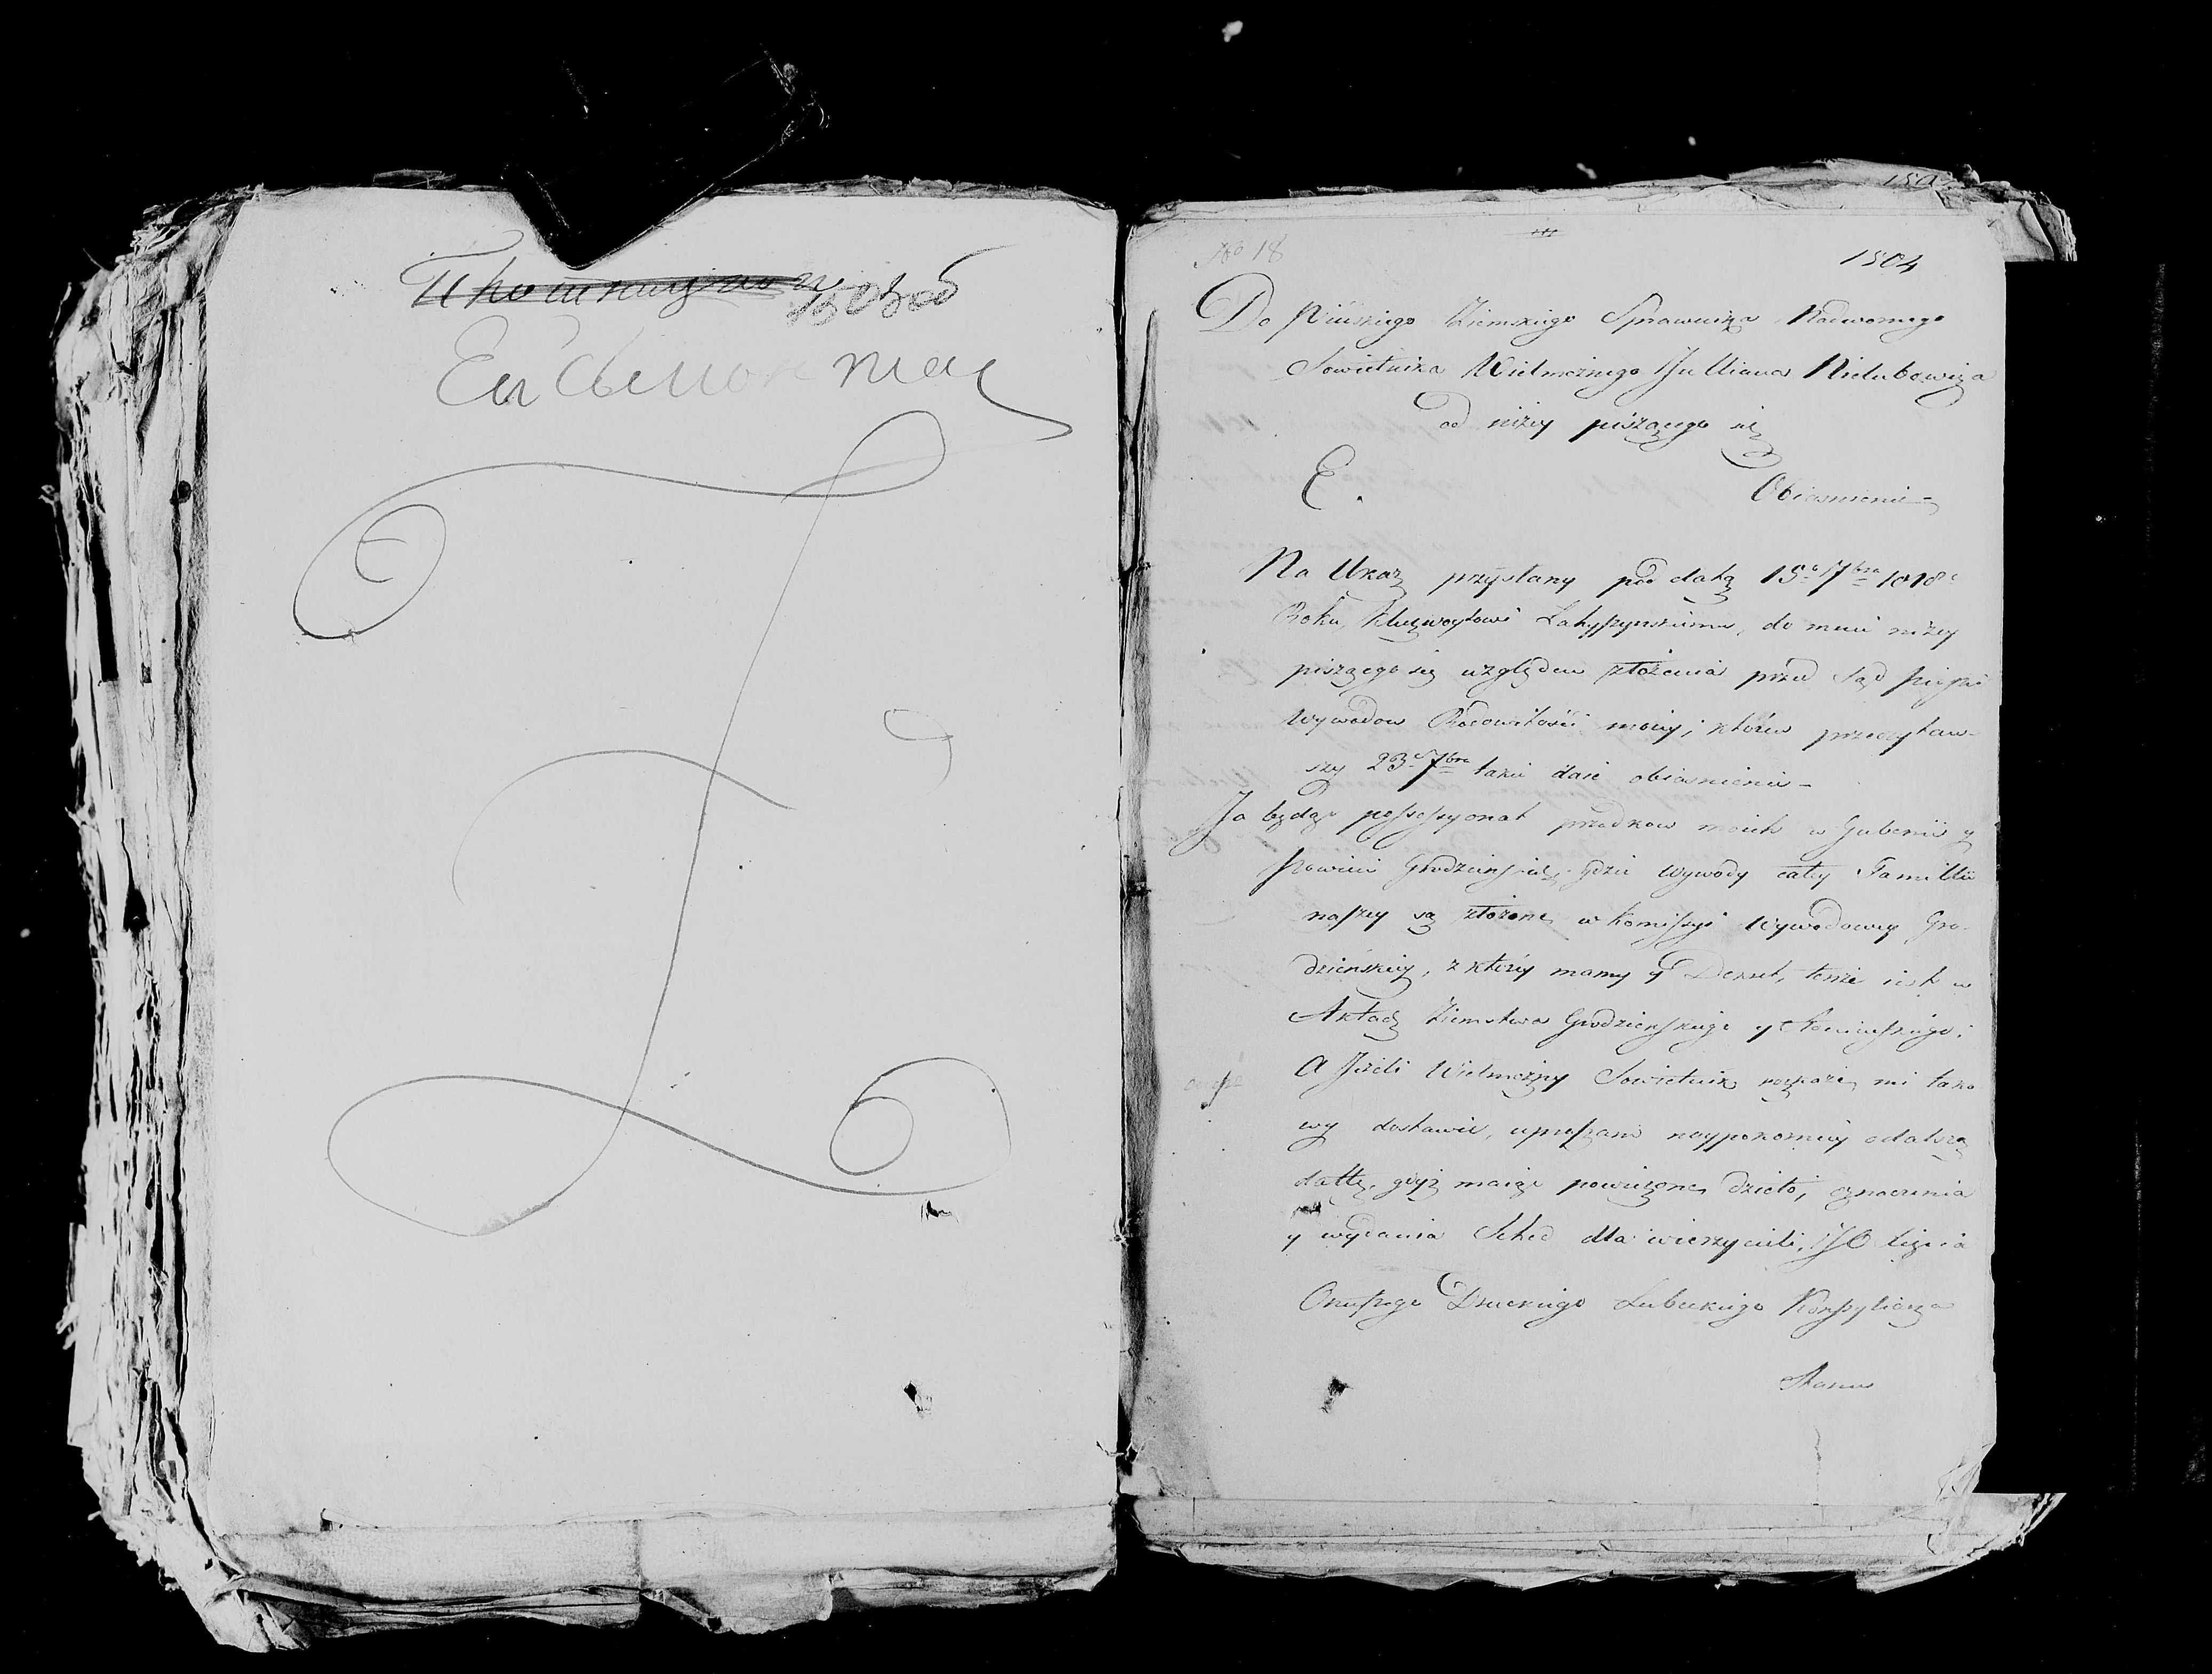 1503об
№ 18
1504
Do Pińskiego Ziemskiego Sprawnika Nadwornego
Sowietnika Wielmożnego Julliana Nielubowicza
od niżey piszącego się
Obiasnienie
Na Ukaz przysłany pod datą 15º 7bra 1818º
Roku, Kluczwoytowi Łahyszynskiemu, do mnie niżey
piszącego się względem złożenia przed Sąd
Wywodow Rodowitości moiey; który przeczytaw-
szy 23º 7bra takie daie obiasnienie –
Ja będąc possessyonat przodkow moich w Gubernii y
Powiecie Grodzienskiey gdzie wywody całey Familii
naszey są złożone w Komissyi Wywodowey Gro-
dzieńskiey, z którey mamy y Dekret, tenże iest w
Aktach Ziemstwa Grodzienskiego y
A Jeżeli Wielmożny Sowietnik rozkaże mi tako
wy dostawić, upraszam naypokorniey o dalszą
dattę, gdyż maiąc powierzone dzieło,
y wydania Sched dla wierzycieli, JO Xięcia
Onufrego Druckiego Lubeckiego Konsyliarza
Stanu